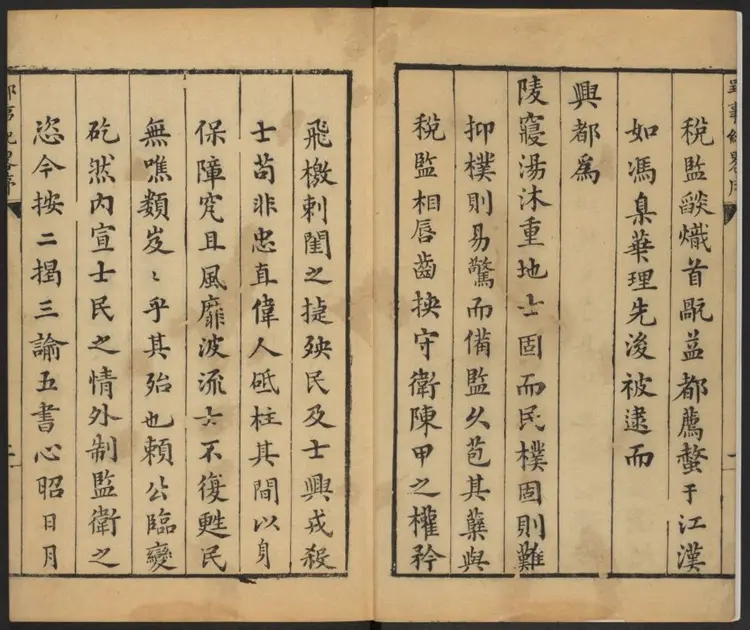 郢事紀畧序
一
稅監燄熾首翫益都薦螫于江漢
如馮臬華理先後被逮而
興都爲
陵寢湯沐重地士固而民樸固則難
抑樸則易驚而備監久苞其蘖與
稅監相唇齒挾守衛陳甲之權矜
飛檄刺閨之捷殃民及士興戎殺
士苟非忠直偉人砥柱其間以身
保障究且風靡波流士不復甦民
無噍類岌〻乎其殆也賴公臨變
矻然內宣士民之情外制監衛之
恣今按二揭三諭五書心昭日月
郢事紀畧序
二